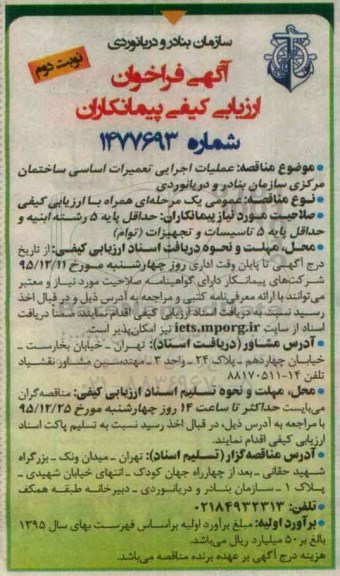 سازمان بنادر و دریانوردی
نوبت دوم
آگهی فراخوان
ارزیابی کیفی پیمانکاران
شماره ۱۴۷۷۶۹۳
• موضوع مناقصه: عملیات اجرایی تعمیرات اساسی ساختمان
مرکزی سازمان بنادر و دریانوردی
• نوع مناقصه: عمومی یک مرحله‌ای همراه با ارزیابی کیفی
• صلاحیت مورد نیاز پیمانکاران: حداقل پایه ۵ رشته ابنیه و
حداقل پایه ۵ تاسیسات و تجهیزات (توام)
• محل، مهلت و نحوه دریافت اسناد ارزیابی کیفی: از تاریخ
درج آگهی تا پایان وقت اداری روز چهارشنبه مورخ ۹۵/۱۲/۱۱
شرکت‌های پیمانکار دارای گواهینامه صلاحیت مورد نیاز و معتبر
می‌توانند با ارائه معرفی‌نامه کتبی و مراجعه به آدرس ذیل و در قبال اخذ
رسید نسبت به دریافت اسناد ارزیابی کیفی اقدام نمایند. ضمنا دریافت
اسناد از سایت iets.mporg.ir نیز امکان‌پذیر است.
• آدرس مشاور (دریافت اسناد): تهران - خیابان بخارست -
خیابان چهاردهم - پلاک ۲۴ - واحد ۳ - مهندسین مشاور نقشیاد
تلفن ۱۴-۸۸۱۷۰۵۱۱
• محل، مهلت و نحوه تسلیم اسناد ارزیابی کیفی: مناقصه‌گران
می‌بایست حداکثر تا ساعت ۱۴ روز چهارشنبه مورخ ۹۵/۱۲/۲۵
با مراجعه به آدرس ذیل، در قبال اخذ رسید نسبت به تسلیم پاکت اسناد
ارزیابی کیفی اقدام نمایند.
• آدرس مناقصه‌گزار (تسلیم اسناد): تهران - میدان ونک - بزرگراه
شهید حقانی - بعد از چهارراه جهان کودک - انتهای خیابان شهیدی -
پلاک ۱ - سازمان بنادر و دریانوردی - دبیرخانه طبقه همکف
• تلفن: ۰۲۱۸۴۹۳۲۳۱۳
• برآورد اولیه: مبلغ برآورد اولیه براساس فهرست بهای سال ۱۳۹۵
بالغ بر ۵۰ میلیارد ریال می‌باشد.
هزینه درج آگهی بر عهده برنده مناقصه می‌باشد.